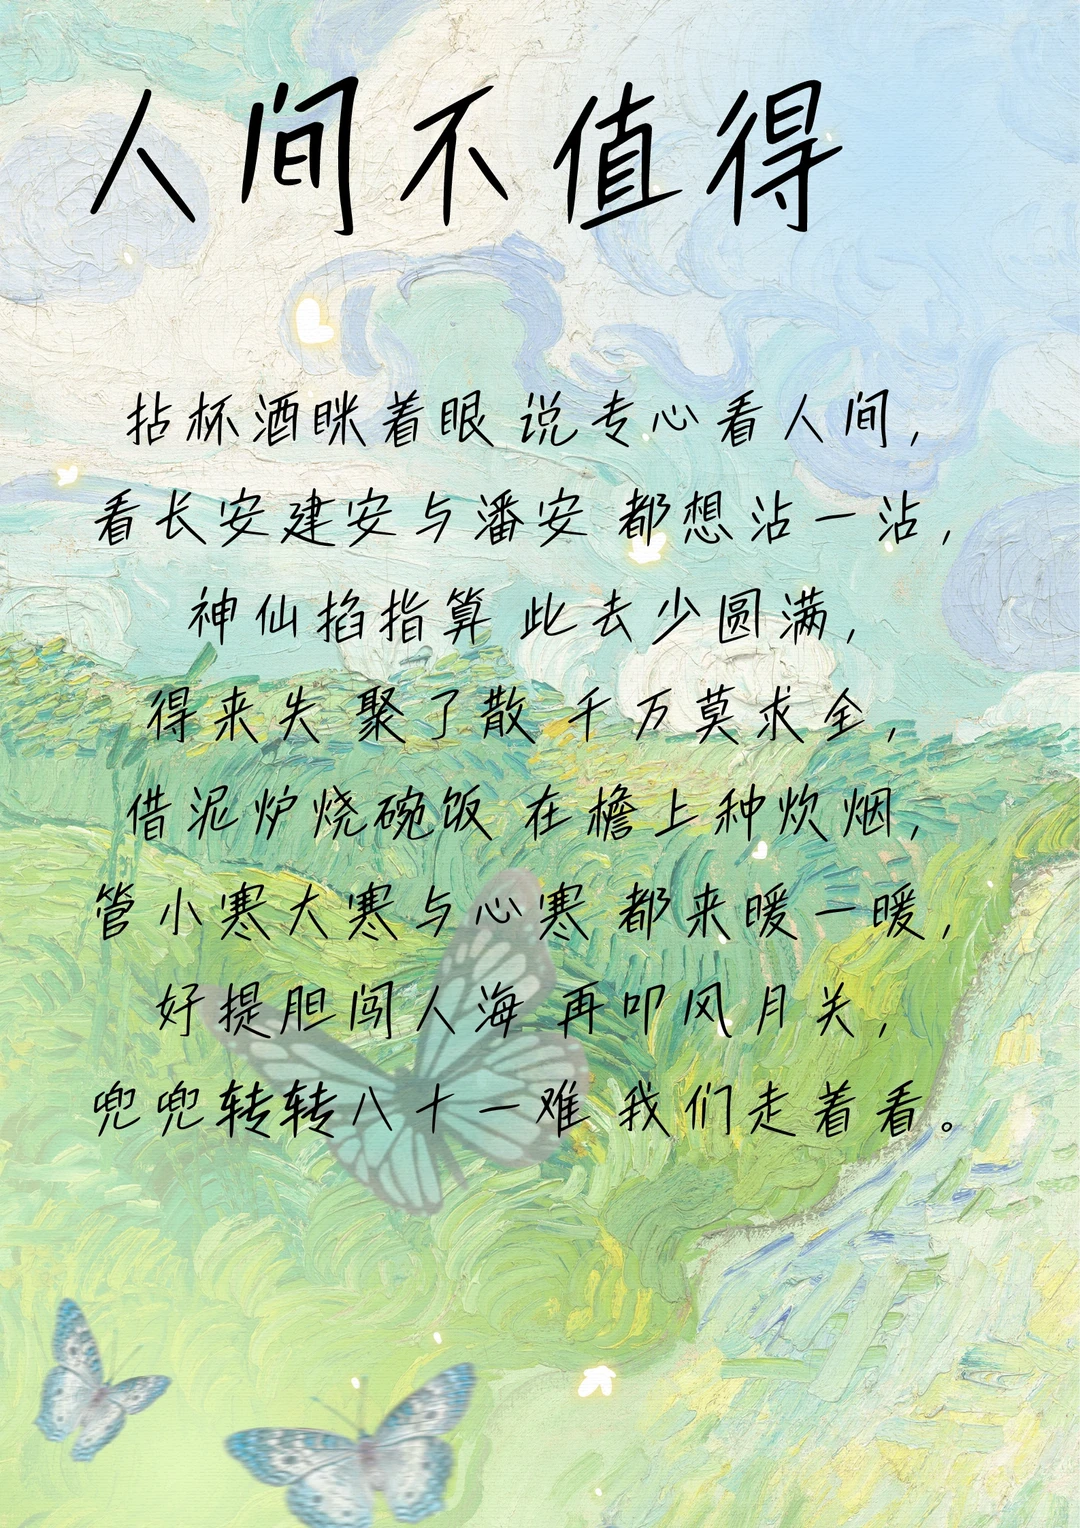 人间不值得
拈杯酒眯着眼 说专心看人间,
看长安建安与潘安 都想沾一沾,
神仙掐指算 此去少圆满,
得来失 聚了散 千万莫求全,
借泥炉烧碗饭 在檐上种炊烟,
管小寒大寒与心寒 都来暖一暖,
好提胆闯人海 再叩风月关,
兜兜转转八十一难 我们走着看。